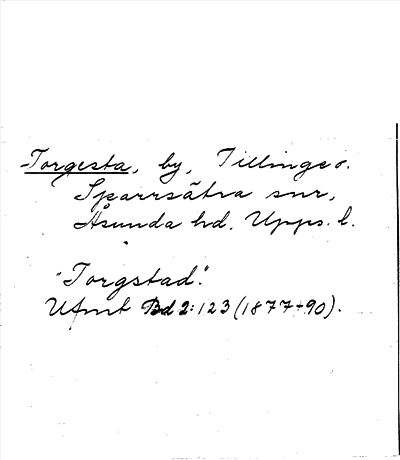 Torgesta, by, Tillinge o.
Sparrsätra snr,
Åsunda hd, Upps. l.
"Torgstad".
UFmt Bd 2:123 (1877-90).